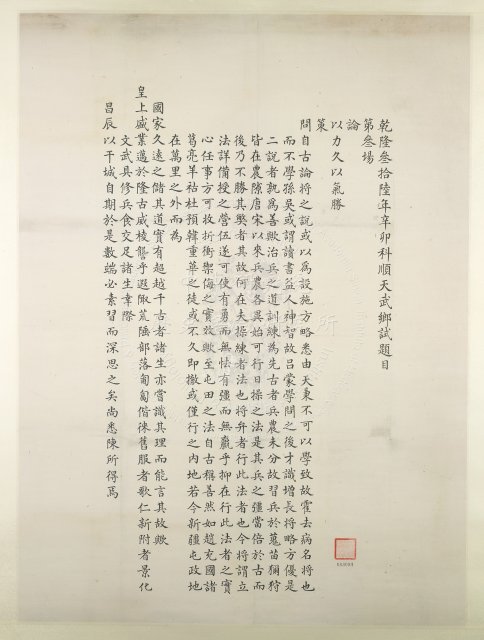 乾隆叁拾陸年辛卯科順天武鄉試題目
第叁場
論
以力久以氣勝
策
問自古論將之說或以為設施方略悉由天稟不可以學致故霍去病名將也
而不學孫吳或謂讀書益人神智故呂蒙學問之後才識增長將略方優是
二說者孰為善歟治兵之道訓練為先古者兵農未分故習兵於蒐苗獮狩
皆在農隙唐宋以來兵農各異始可行日操之法是其兵之彊當倍於古而
後乃不勝其獘者其故何在夫操練者法也將弁者行此法者也今將謂立
法詳備授之營伍遂可使有勇而無怯有彊而無羸乎抑在行此法者之實
心任事方可收折衝禦侮之實效歟至屯田之法自古稱善然如趙充國諸
葛亮羊祜杜預韓重華之徒或不久即撤或僅行之內地若今新疆屯政地
在萬里之外而為
國家久遠之儲其道實有超越千古者諸生亦嘗識其理而能言其故歟
皇上盛業邁於隆古威棱讋乎遐陬荒陲部落匍匐偕徠舊服者歌仁新附者景化
文武具修兵食交足諸生幸際
昌辰以干城自期於是數端必素習而深思之矣尚悉陳所得焉